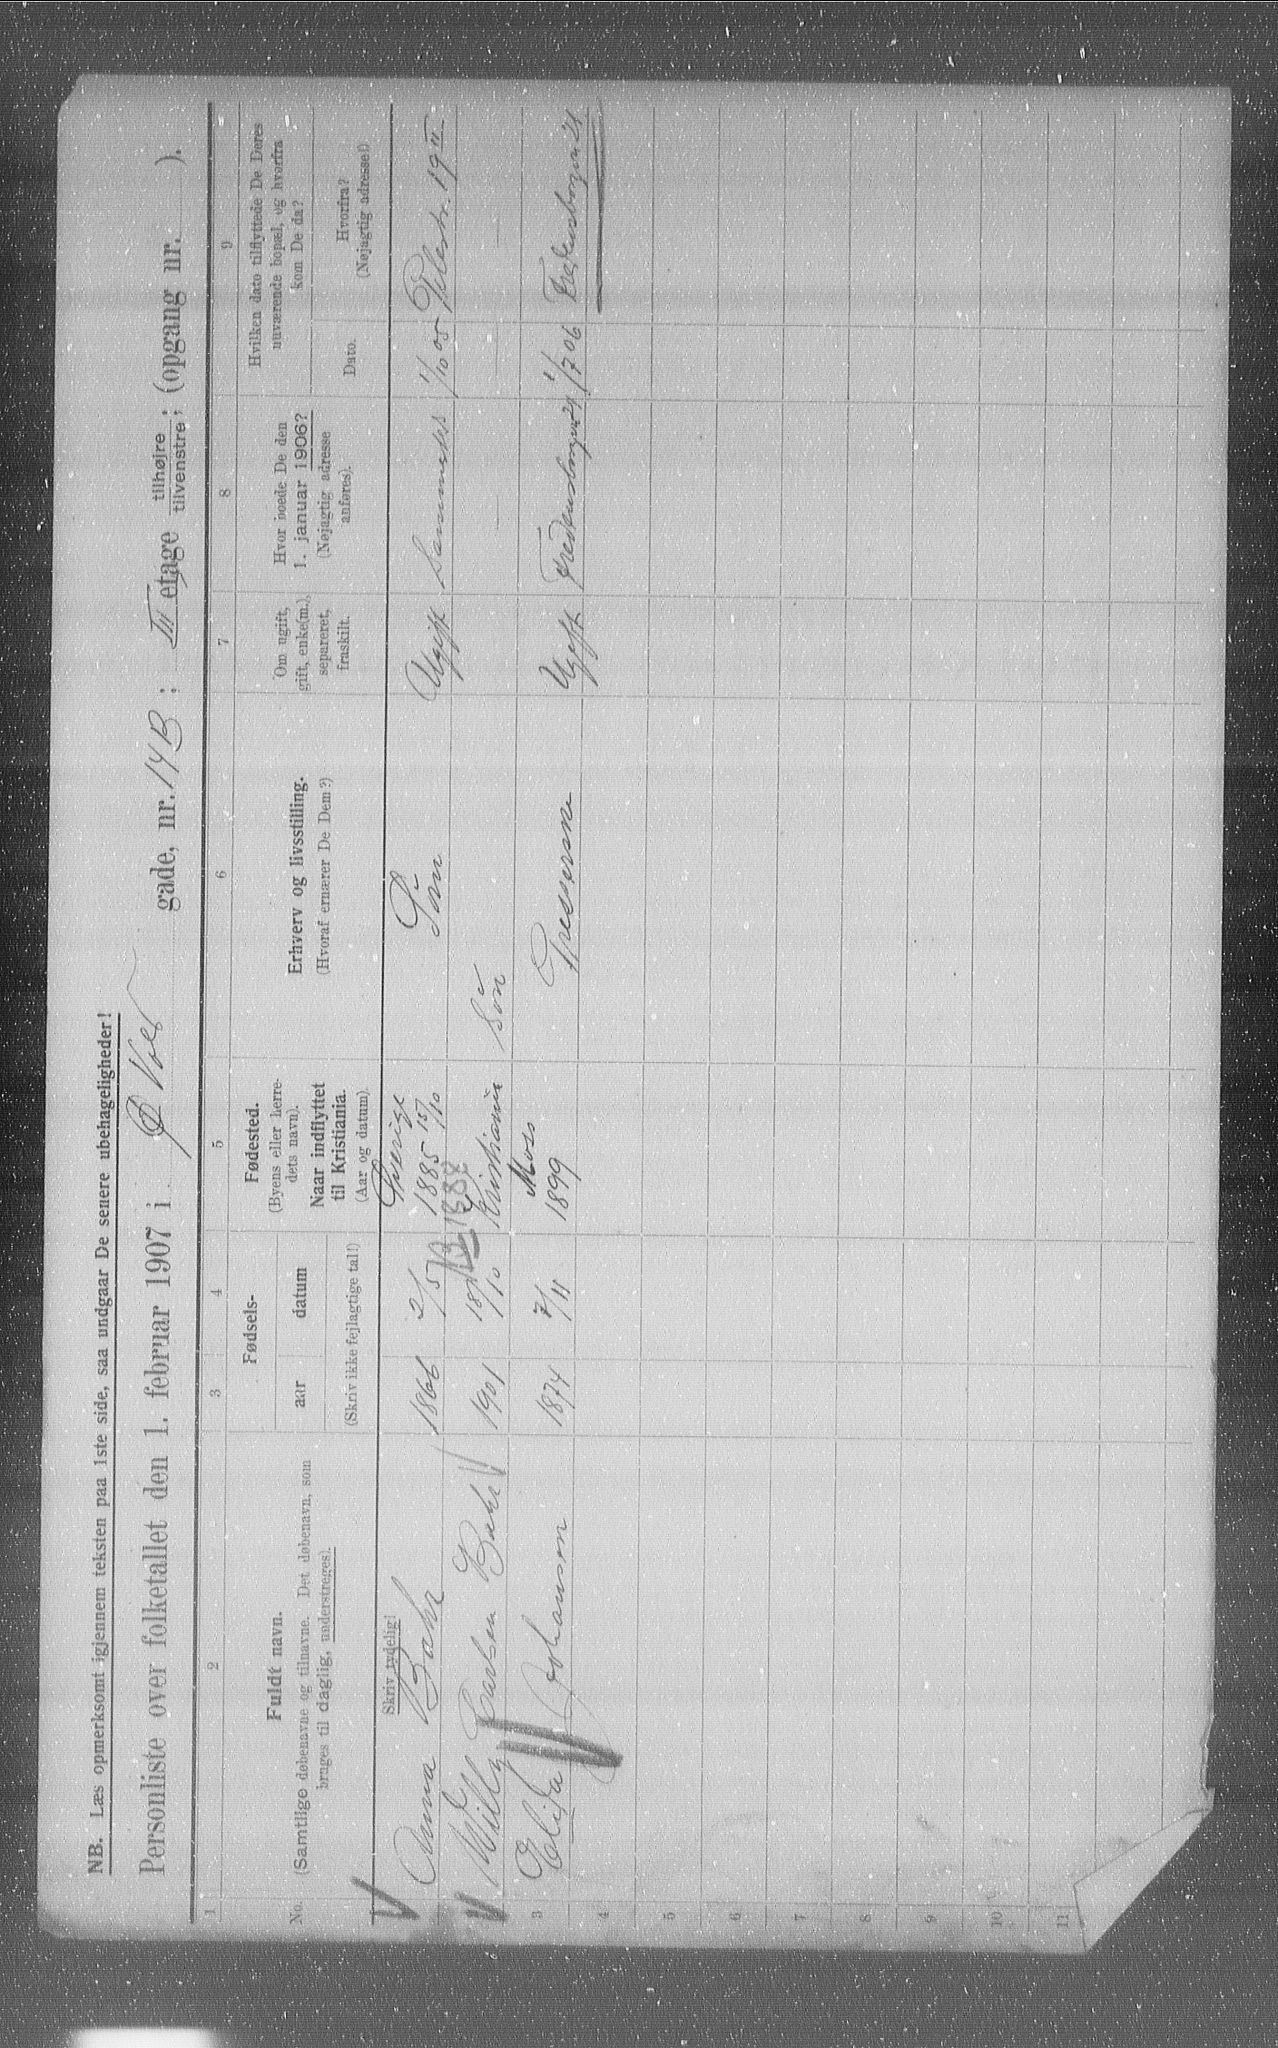 NB. Læs opmerksomt igjennem teksten paa 1ste side, saa undgaar De senere ubehageligheder!
Personliste over folketallet den 1. februar 1907 i Ø Vold gade, nr. 14 B ; III etage tilhøjre ; tilvenstre ; (opgang nr. ).
1 2 3 4 5 6 7 8 9
No. Fuldt navn. (Samtlige døbenavne og tilnavne. Det døbenavn, som bruges til daglig, understreges).
Fødsels- aar datum (Skriv ikke fejlagtige tal!)
Fødested. (Byens eller herredets navn). Naar indflyttet til Kristiania. (Aar og datum).
Erhverv og livsstilling. (Hvoraf ernærer De Dem?)
Om ugift, gift, enke(m.), separeret, fraskilt.
Hvor boede De den 1. januar 1906? (Nøjagtig adresse anføres).
Hvilken dato tilflyttede De Deres nuværende bopæl, og hvorfra kom De da?
Dato. Hvorfra? (Nøjagtig adresse!)
Skriv tydelig!
Anna 1866 2/5 Sverige 1885 15/10 Ugift Sammested 1/10 05 19 II
13 1882
Willy Carlsen 1901 18/10 Kristiania Søn
3 Elida Johansen 1874 7/11 Moss 1899 Presserske Ugift Fredensborgvn 21 1/7 06 Fredensborgvn 21
4
5
6
7
8
9
10
11